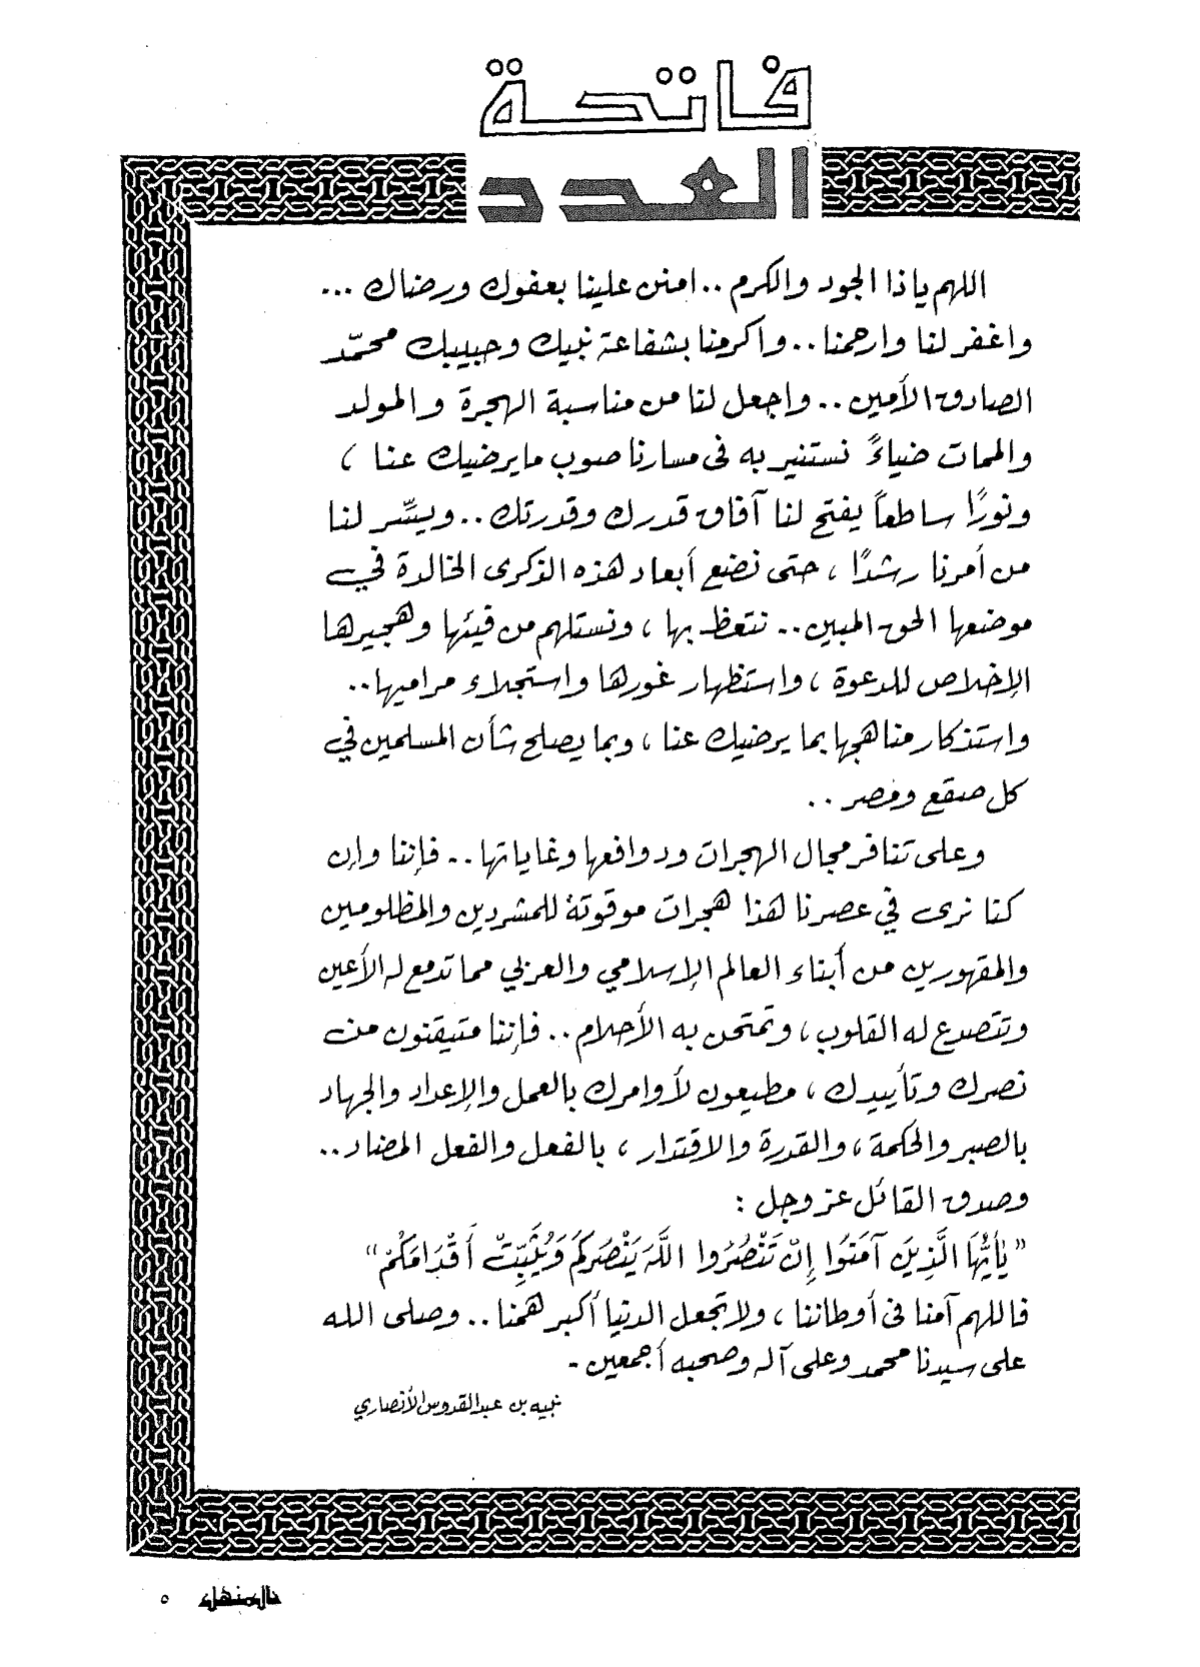 فاتحة
العدد
اللهم ياذا الجود والكرم .. امنن علينا بعفوك ورضاك ...
واغفر لنا وارحمنا .. واكرمنا بشفاعة نبيك وحبيبك محمّد
الصادق الأمين .. واجعل لنا من مناسبة الهجرة والمولد
والممات ضياءً نستنير به فى مسارنا صوب مايرضيك عنا ،
ونورًا ساطعاً يفتح لنا آفاق قدرك وقدرتك .. ويسّر لنا
من أمرنا رشدًا ، حتى نضع أبعاد هذه الذكرى الخالدة في
موضعها الحق المبين .. نتعظ بها ، ونستلهم من فيئها وهجيرها
الإخلاص للدعوة ، واستظهار غورها واستجلاء مراميها ..
واستذكار مناهجها بما يرضيك عنا ، وبما يصلح شأن المسلمين في
كل صقع ومصر ..
وعلى تنافر مجال الهجرات ودوافعها وغاياتها .. فإننا وإن
كنا نرى في عصرنا هذا هجرات موقوتة للمشردين والمظلومين
والمقهورين من أبناء العالم الإسلامي والعربي مما تدمع له الأعين
وتتصدع له القلوب ، وتمتحن به الأحلام .. فإننا متيقنون من
نصرك وتأييدك ، مطيعون لأوامرك بالعمل والإعداد والجهاد
بالصبر والحكمة ، والقدرة والاقتدار ، بالفعل والفعل المضاد ..
وصدق القائل عز وجل :
” يٰأَيُّهَا الَّذِينَ آمَنُوا إِنْ تَنْصُرُوا اللَّهَ يَنْصُركُمْ وَيُثَبِّتْ أَقْدَامَكُمْ “
فاللهم آمنا فى أوطاننا ، ولا تجعل الدنيا أكبر همنا .. وصلى الله
على سيدنا محمد وعلى آله وصحبه أجمعين -
نبيه بن عبدالقدوس الأنصاري
المنهل ٥